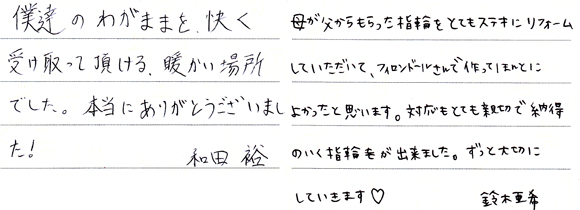 僕達のわがままを、快く
受け取って頂ける、暖かい場所
でした。本当にありがとうございまし
た！
和田 裕
母が父からもらった指輪をとてもステキにリフォーム
していただいて、フィロンドールさんで作ってほんとに
よかったと思います。対応もとても親切で納得
のいく指輪をが出来ました。ずっと大切に
していきます♡
鈴木亜希